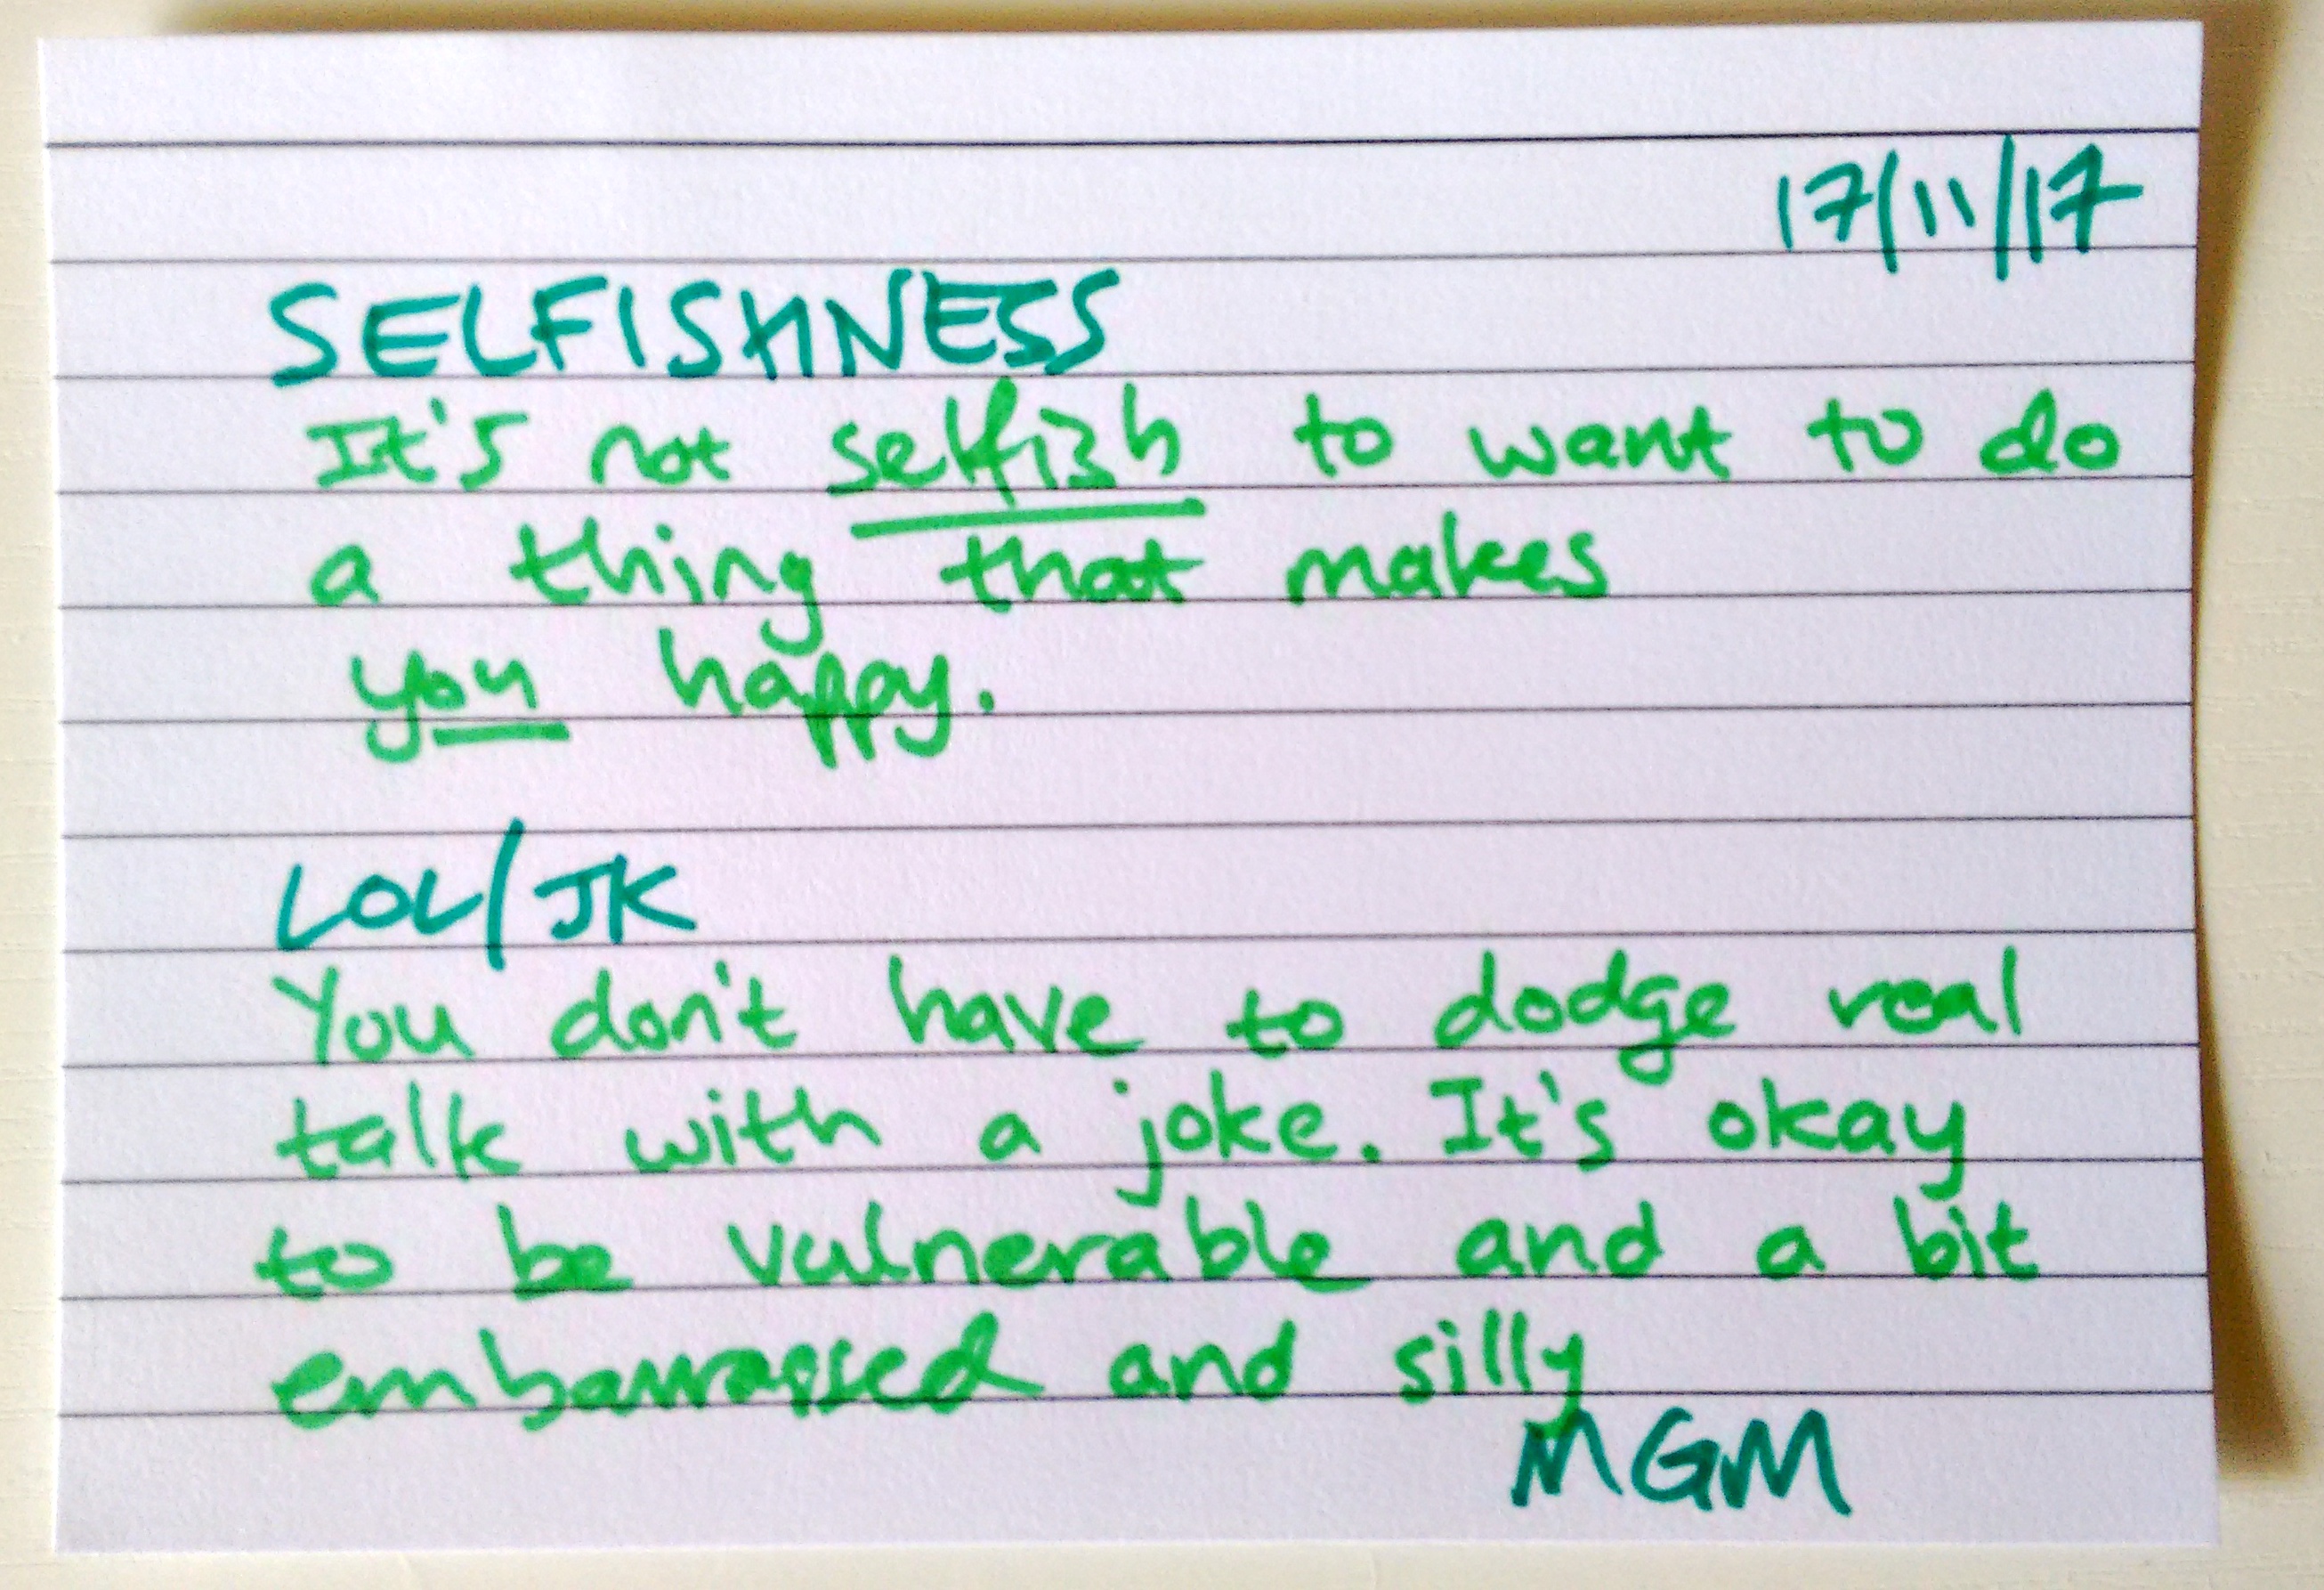 17/11/17
SELFISHNESS
It's not selfish to want to do
a thing that makes
you happy.
LOL/JK
You don't have to dodge real
talk with a joke. It's okay
to be vulnerable and a bit
embarrassed and silly
MGM